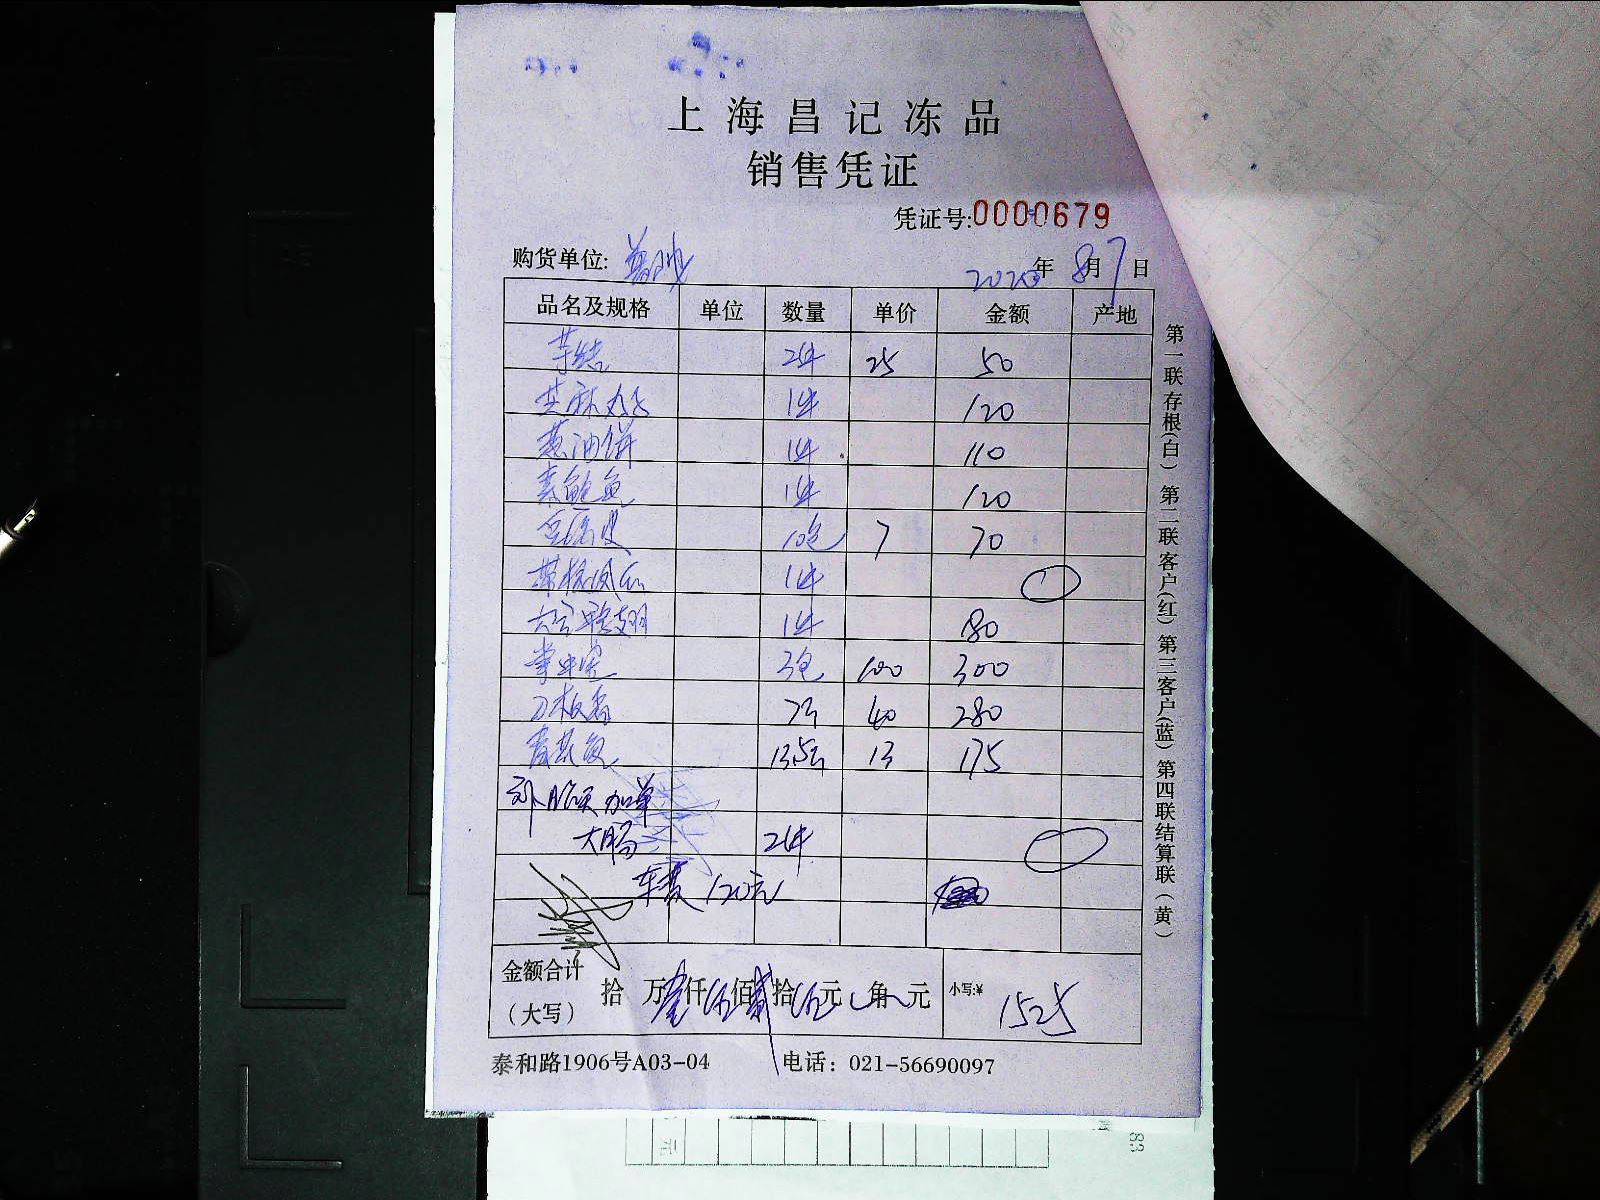 上海昌记冻品
销售凭证
凭证号:0000679
购货单位:
2020年 8月7日
品名及规格 单位 数量 单价 金额 产地
芋结 2件 25 50
芝麻丸子 1件 120
葱油饼 1件 110
素鲍鱼 1件 120
10包 7 70
1件
鸭翅 1件 180
掌中宝 3包 100 300
刀板香 7斤 40 280
鱼 13.5斤 13 175
加单
大肠 2件
车费 120元
金额合计(大写) 拾 万壹仟伍佰贰拾伍元 角 元 小写:¥ 1525
泰和路1906号A03-04 电话：021-56690097
第一联存根(白) 第二联客户(红) 第三客户(蓝) 第四联结算联(黄)